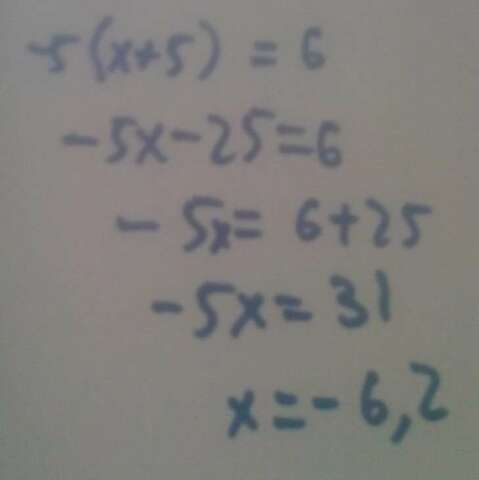 -5(x+5) = 6
-5x-25=6
- 5x= 6+25
-5x= 31
x=-6,2